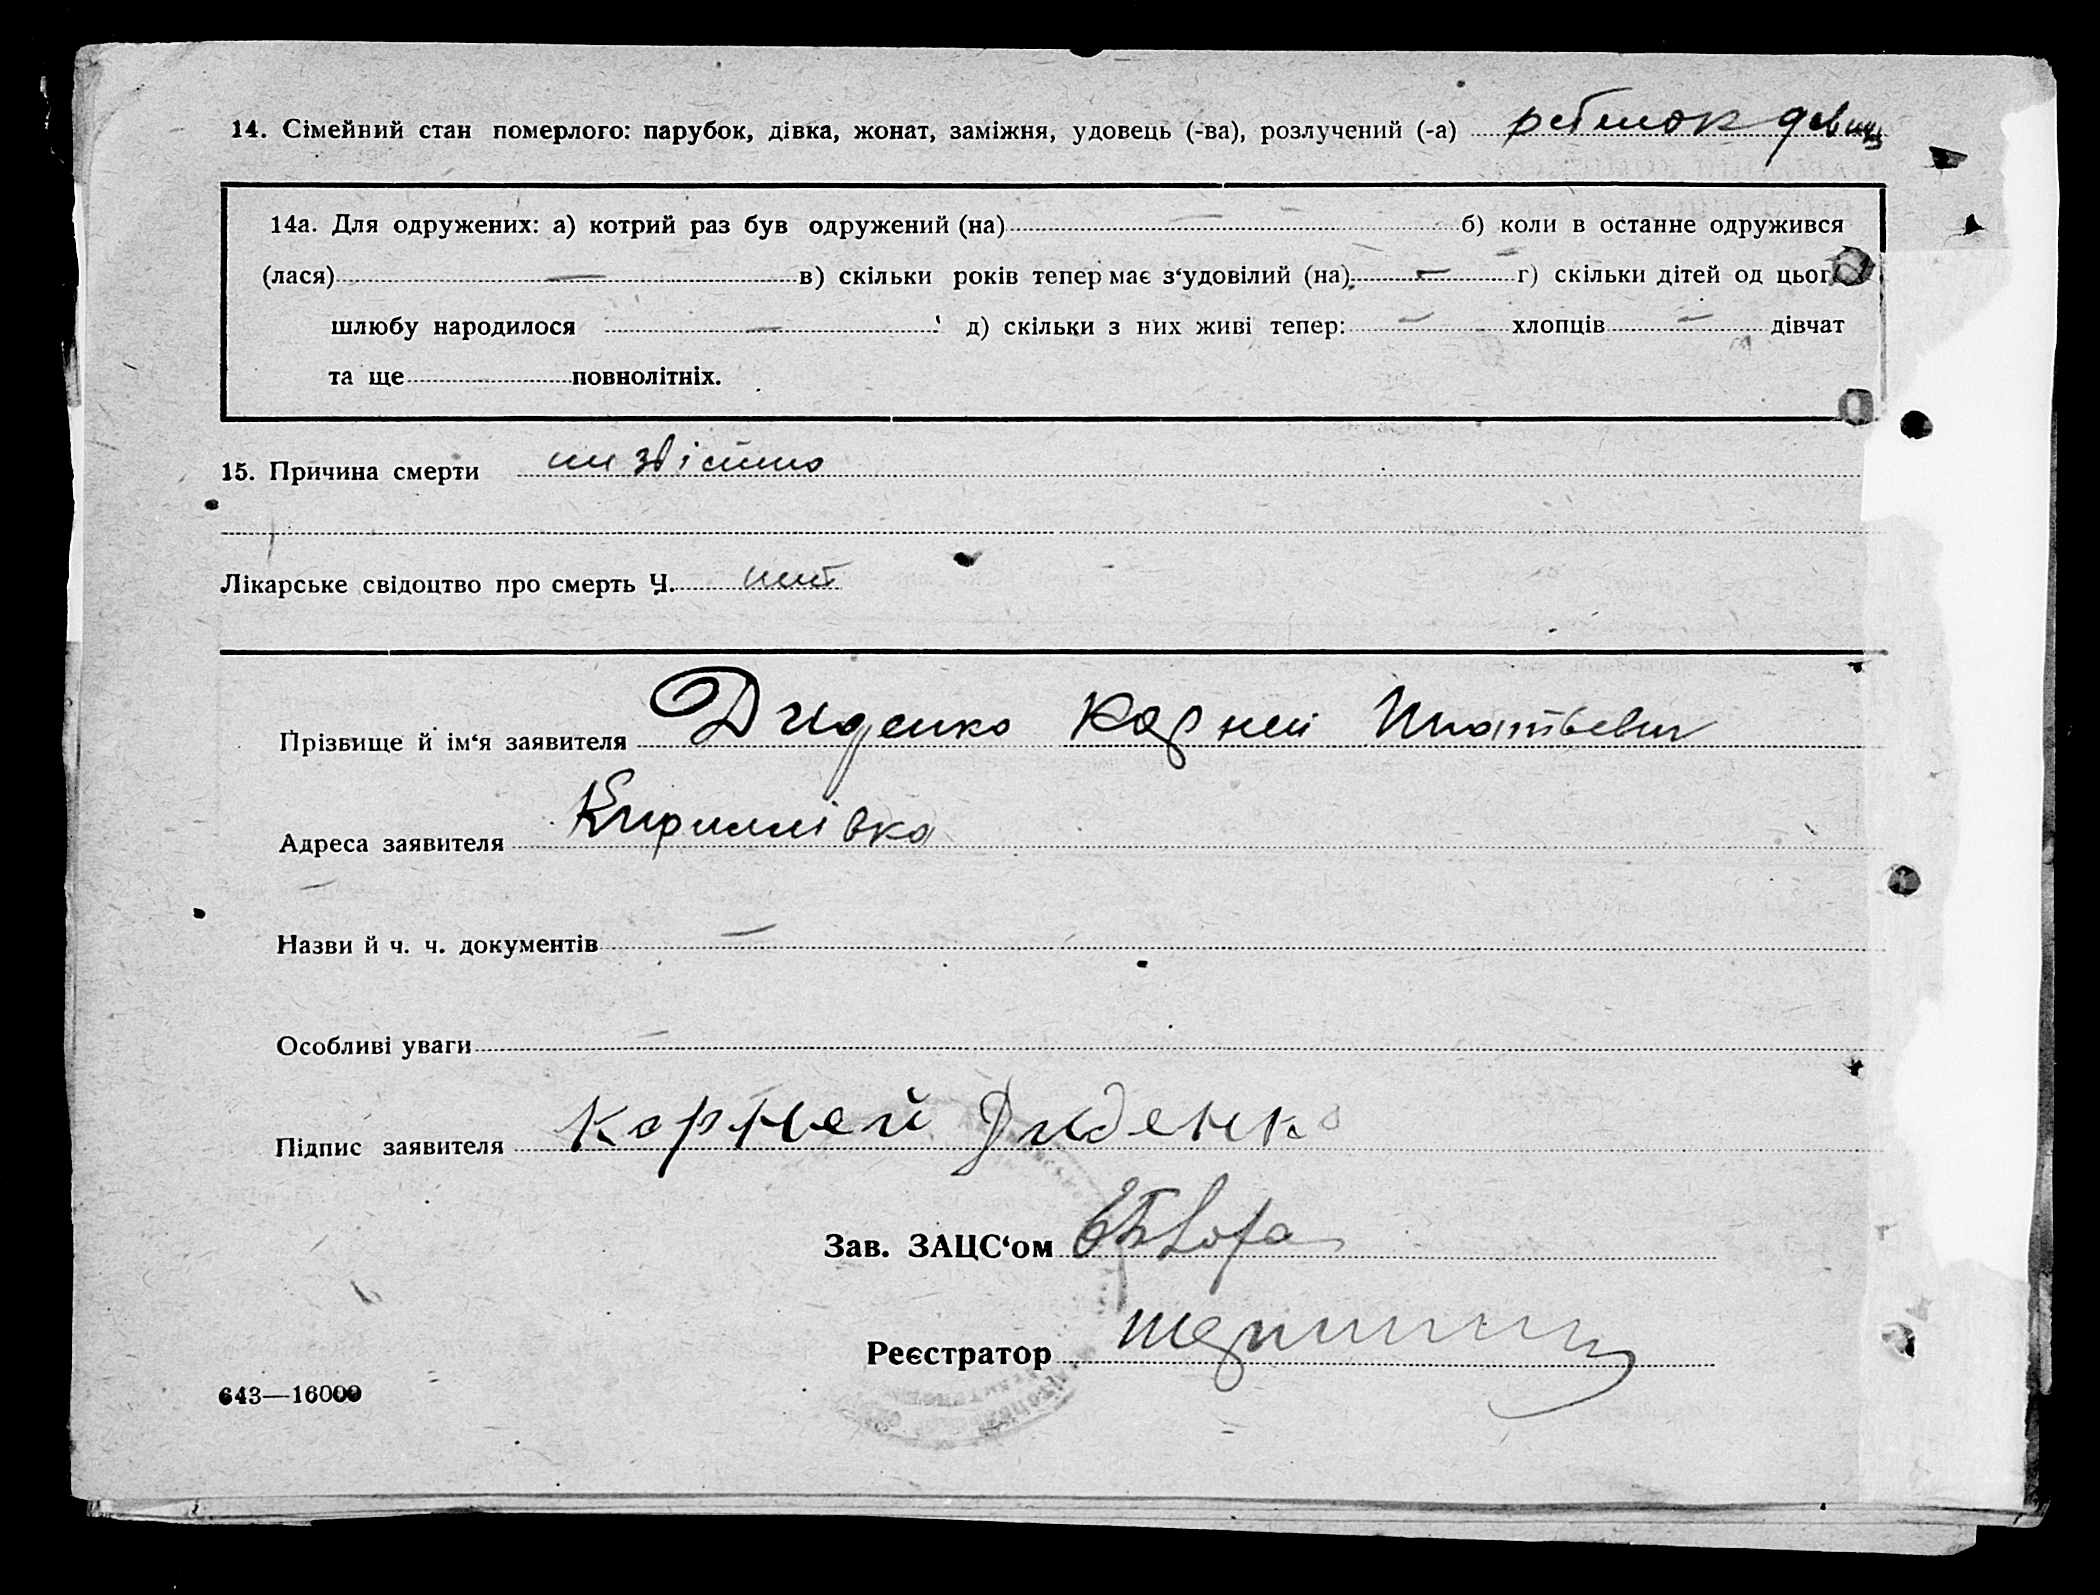 14. Сімейний стан померлого: парубок, дівка, жонат, заміжня, удовець (-ва), розлучений (-а) ребенок девиц
14а. Для одружених: а) котрий раз був одружений (на) — б) коли в останнє одружився
(лася) — в) скільки років тепер має з‘удовілий (на) — г) скільки дітей од цього
шлюбу народилося — д) скільки з них живі тепер: — хлопців — дівчат
та ще повнолітніх.
15. Причина смерти незвістно
Лікарське свідоцтво про смерть Ч. нет
Прізвище й ім‘я заявителя Диденко Карней Игнатьевич
Адреса заявителя Кириллівка
Назви й ч. ч. документів —
Особливі уваги —
Підпис заявителя Корней Диденко
Зав. ЗАЦС‘ом
Реєстратор
643—16000